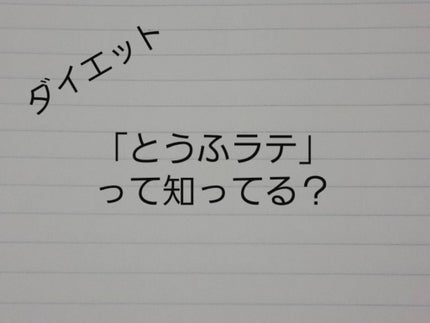 ダイエット
「とうふラテ」
って知ってる？